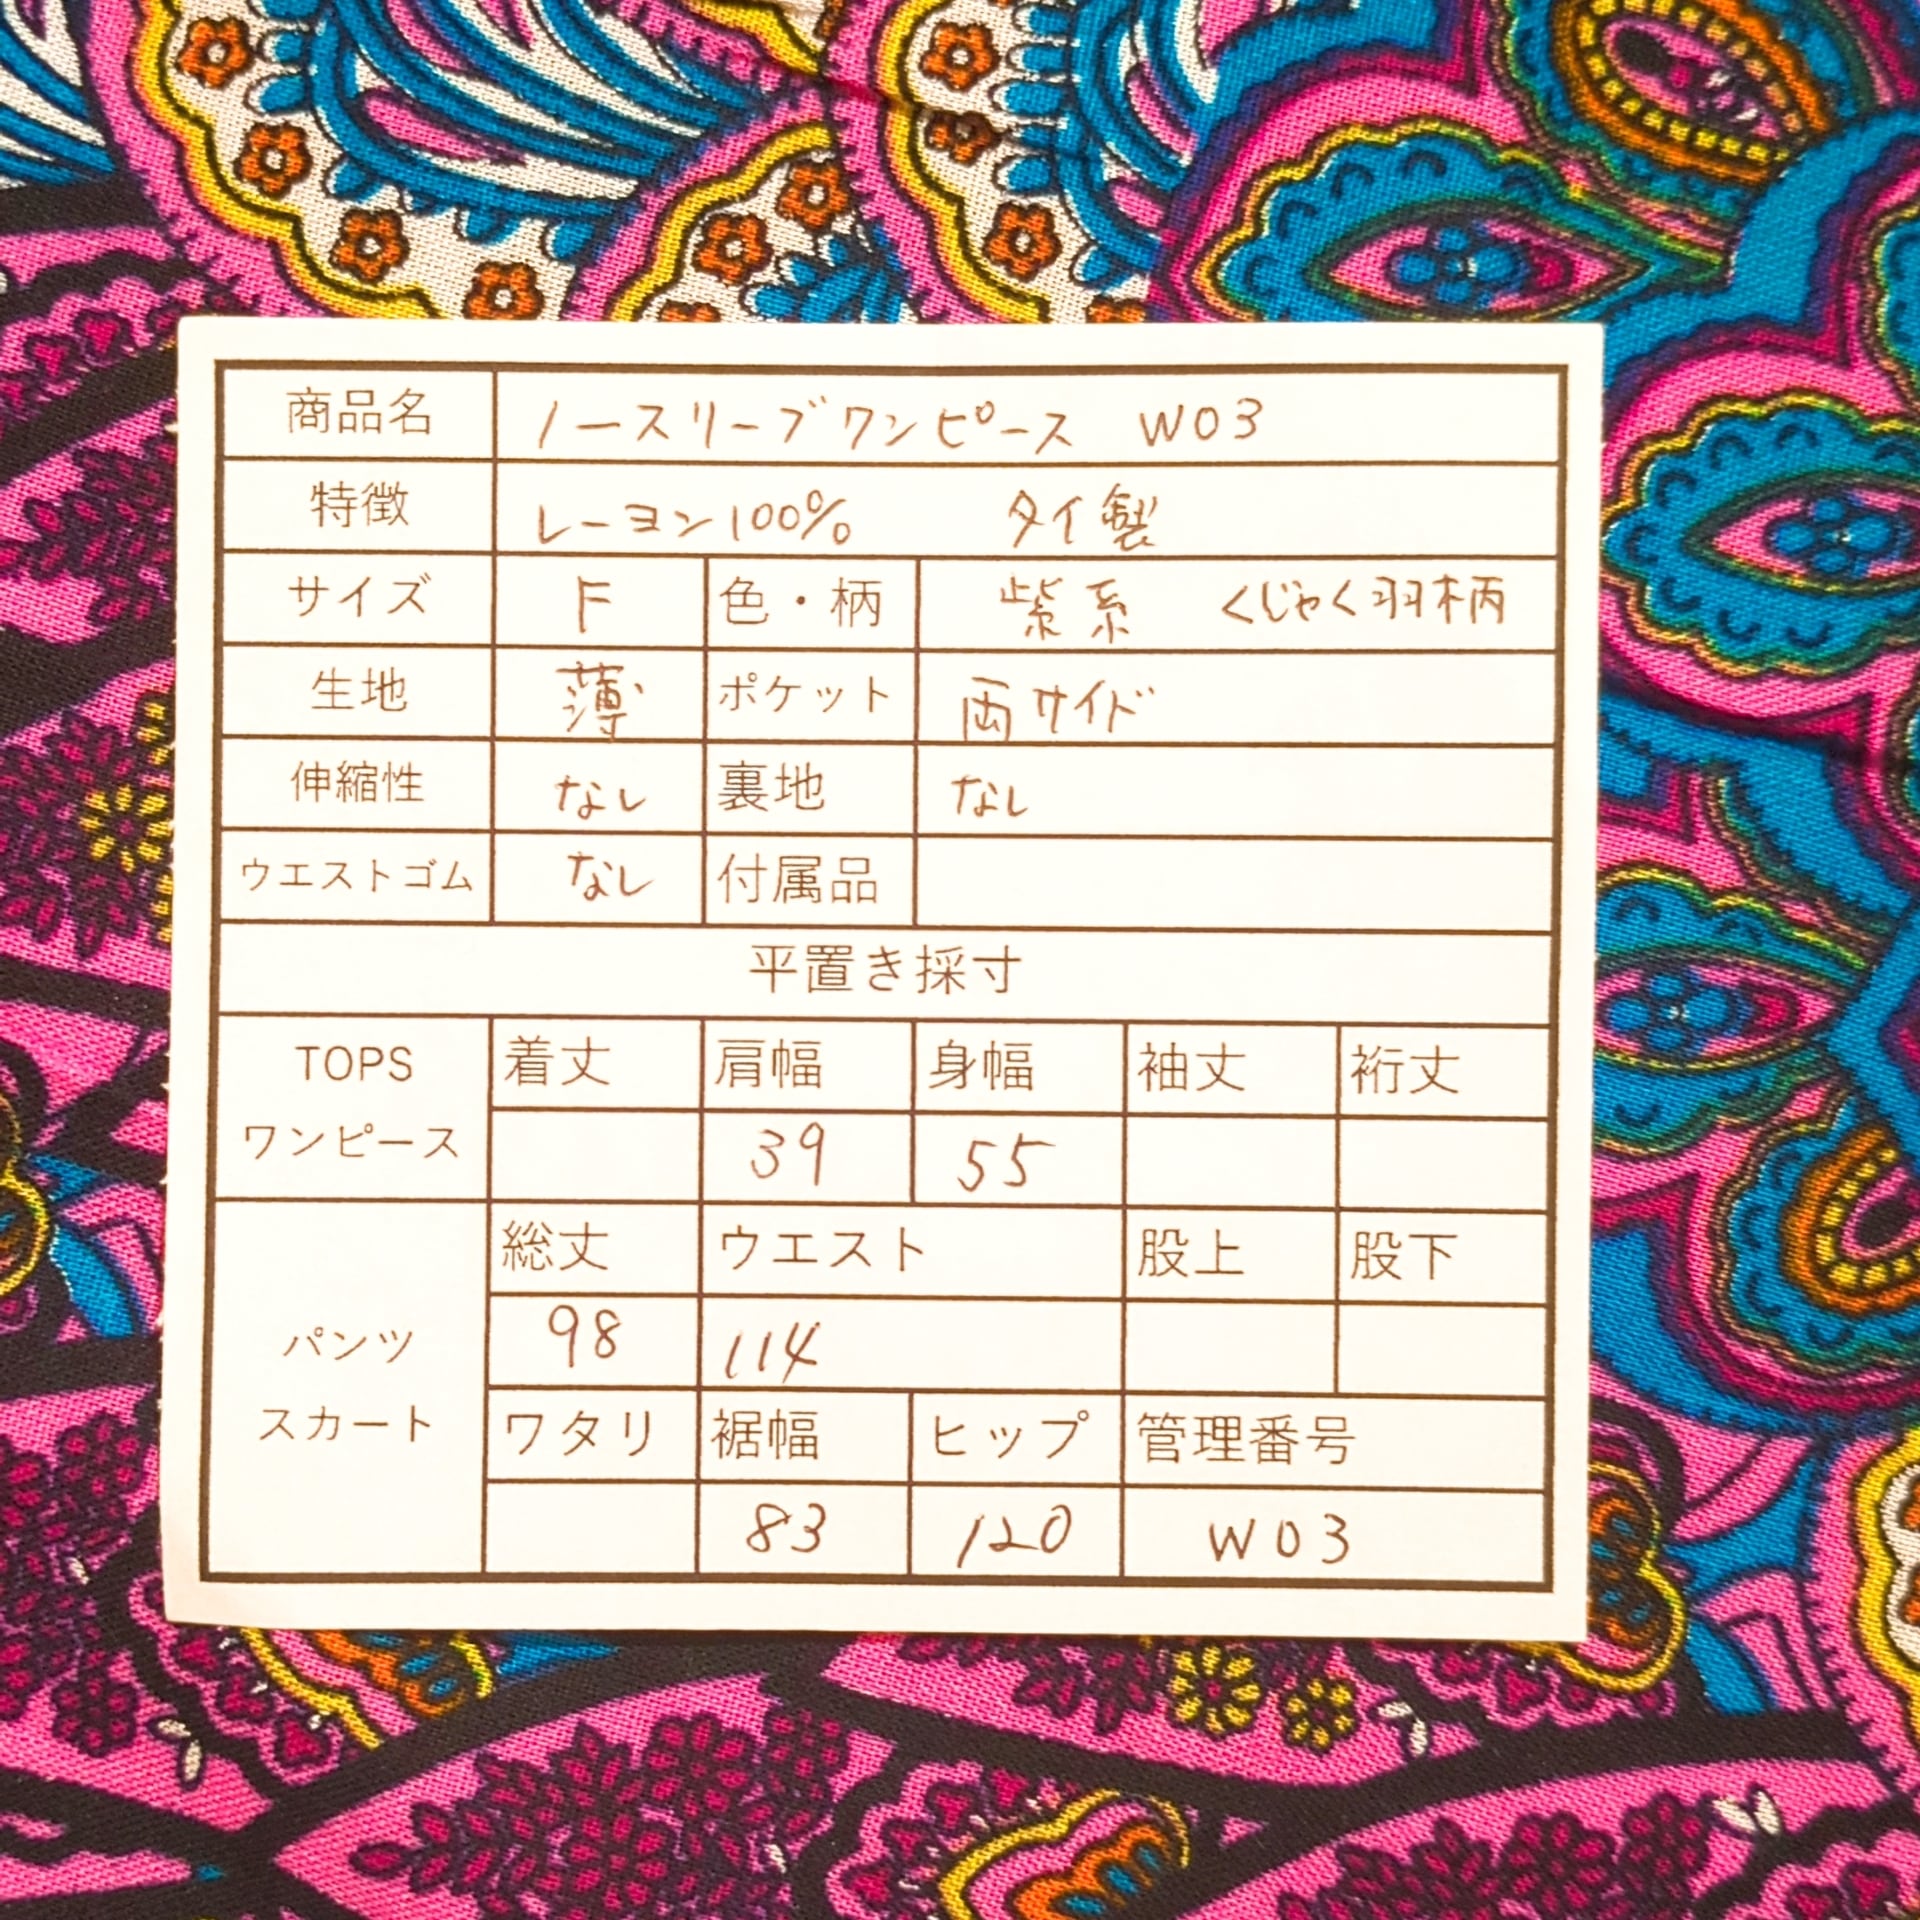 商品名 ノースリーブワンピース W03
特徴 レーヨン100% タイ製
サイズ F 色・柄 紫系 くじゃく羽柄
生地 薄 ポケット 両サイド
伸縮性 なし 裏地 なし
ウエストゴム なし 付属品
平置き採寸
TOPS 着丈 肩幅 身幅 袖丈 裄丈
ワンピース 39 55
総丈 ウエスト 股上 股下
パンツ 98 114
スカート ワタリ 裾幅 ヒップ 管理番号
83 120 W03